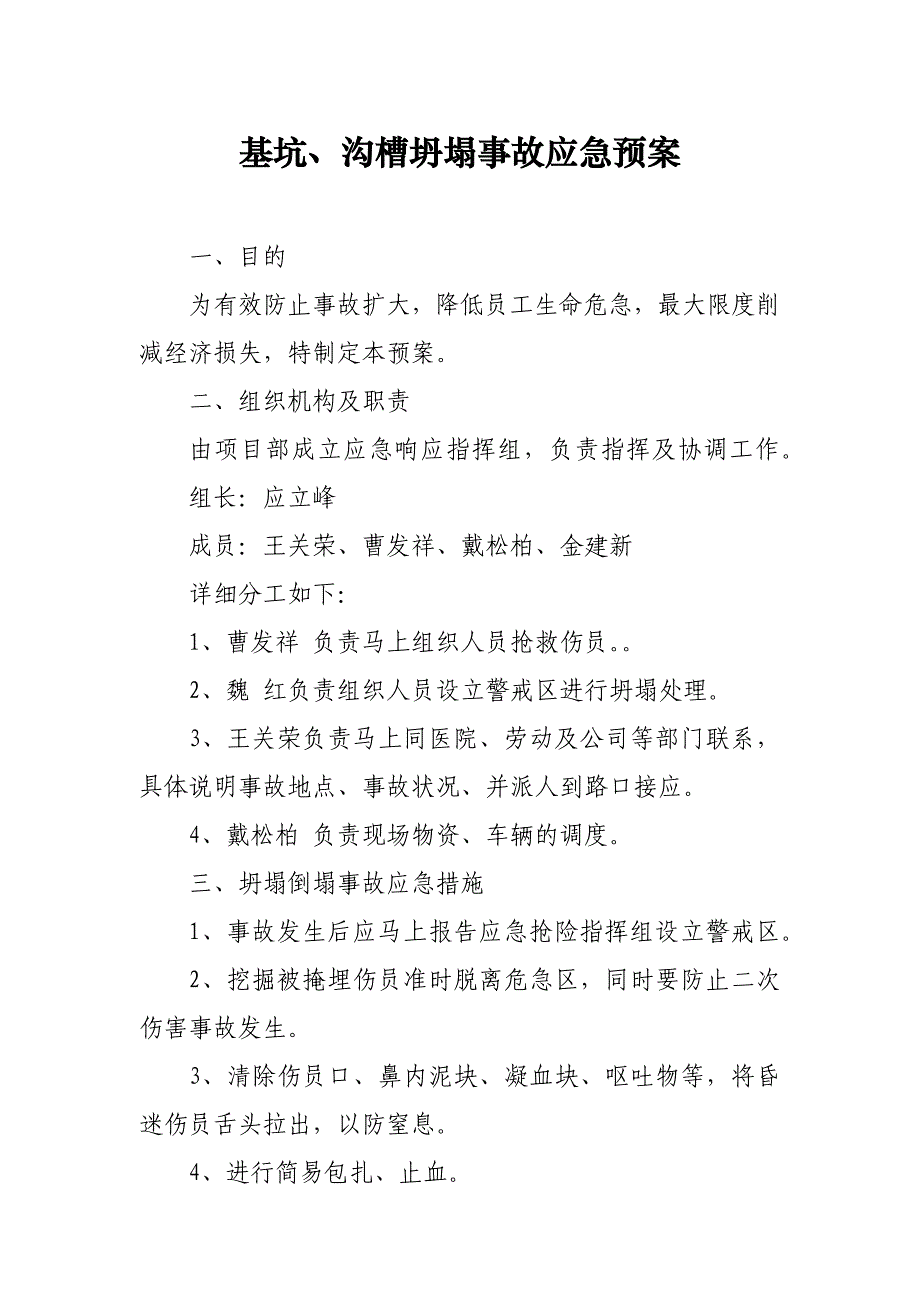 基坑、沟槽坍塌事故应急预案
一、目的
为有效防止事故扩大，降低员工生命危急，最大限度削
减经济损失，特制定本预案。
二、组织机构及职责
由项目部成立应急响应指挥组，负责指挥及协调工作。
组长：应立峰
成员：王关荣、曹发祥、戴松柏、金建新
详细分工如下：
1、曹发祥 负责马上组织人员抢救伤员。。
2、魏 红负责组织人员设立警戒区进行坍塌处理。
3、王关荣负责马上同医院、劳动及公司等部门联系，
具体说明事故地点、事故状况、并派人到路口接应。
4、戴松柏 负责现场物资、车辆的调度。
三、坍塌倒塌事故应急措施
1、事故发生后应马上报告应急抢险指挥组设立警戒区。
2、挖掘被掩埋伤员准时脱离危急区，同时要防止二次
伤害事故发生。
3、清除伤员口、鼻内泥块、凝血块、呕吐物等，将昏
迷伤员舌头拉出，以防窒息。
4、进行简易包扎、止血。